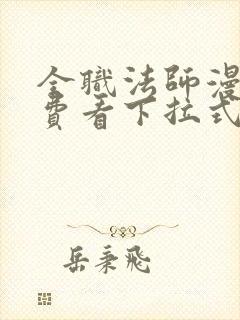 全職法師漫
費看下拉式
岳秉飛